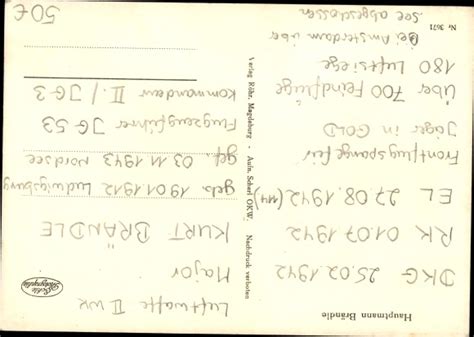 Hauptmann Brändle
DKG 25.02.1942
RK 01.07.1942
EL 27.08.1942 (114)
Frontflugspange für
Jäger in GOLD
Über 700 Feindflüge
180 Luftsiege
Bei Amsterdam über
See abgeschossen
Nr. 3671
Verlag Röhr, Magdeburg - Aufn. Scherl OKW. Nachdruck verboten
Echte Photographie
Luftwaffe II WK
Major
KURT BRÄNDLE
geb. 19.01.1912 Ludwigsburg
gef. 03.11.1943 Nordsee
Flugzeugführer JG-53
Kommandeur II./JG-3
50€